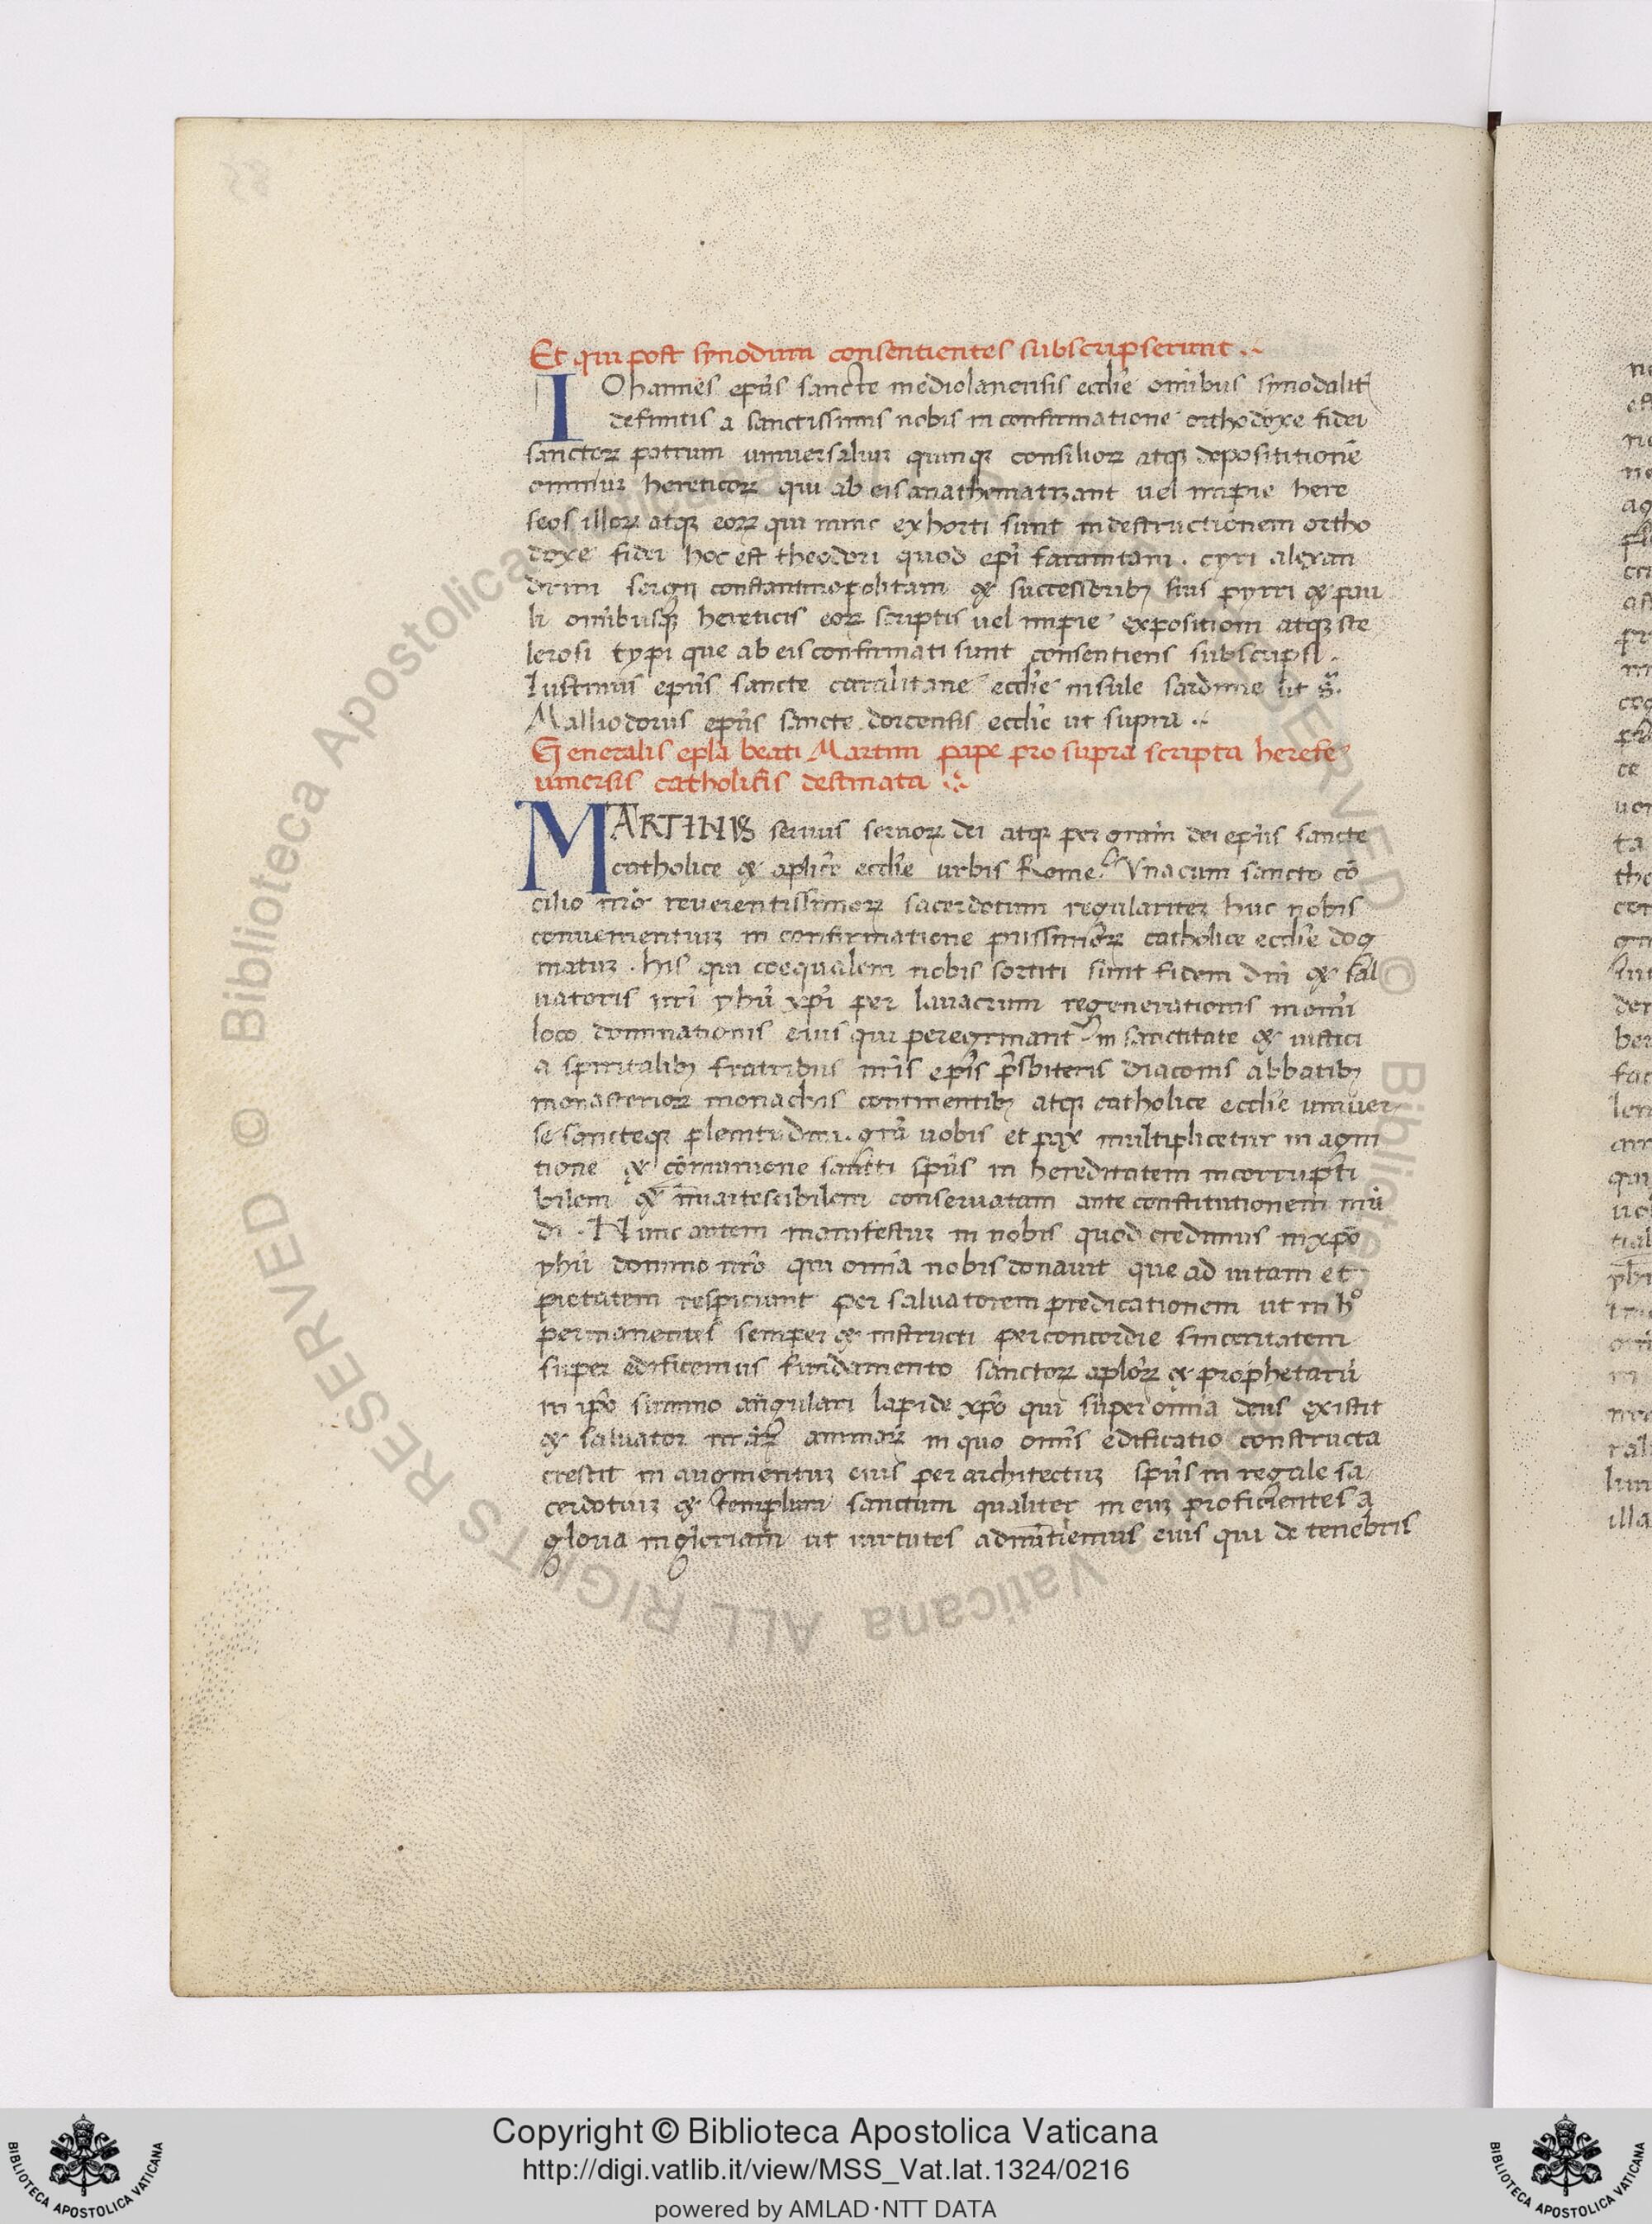 Et qui post synodum consentientes subscripserunt .~
IOhannes ep̃us sancte mediolanensis eccl̃ie om̃ibus synodalit̃
defuntis a sanctissimis nobis in confirmatione orthodoxe fidei
sanctoꝝ patrum uniuersaliuꝫ quinqꝫ consilioꝝ atqꝫ deposititionẽ
omniuꝫ hereticoꝝ qui ab eis anathematizant uel impie here
seos illoꝝ atqꝫ eoꝝ qui nunc exhorti sunt in destructionem ortho
doxe fidei hoc est theodori quod ep̃i faramitani . cyri alexan
drini sergij constantinopolitani & successoribꝫ suis pyrri & pau
li om̃ibusqꝫ hereticis eoꝝ scriptis uel impie expositioni atqꝫ sce
lerosi typi que ab eis confirmati sunt consentiens subscripsi .
Iustinus ep̃us sancte caralitane eccl̃ie insule sardinie ut s̃.
Malliodorus ep̃us sancte dorcensis eccl̃ie ut supra .~
Generalis ep̃la beati Martini pape pro supra scripta herese
uniersis catholicis destinata
MARTINUS seruus seruoꝝ dei atqꝫ per grãm dei ep̃us sancte
catholice & aplĩce eccl̃ie urbis Rome. Vna cum sancto cõ
cilio nr̃o reuerentissimoꝝ sacerdotum regulariter huc nobis
conuenientiuꝫ in confirmatione piissimoꝝ catholice eccl̃ie dog
matuꝫ . his qui coequalem nobis sortiti sunt fidem dñi & sal
uatoris nr̃i yhũ xp̃i per lauacrum regenerationis in om̃i
loco dominationis eius qui peregrinant in sanctitate & iustici
a spiritalibꝫ fratribus nr̃is ep̃is p̃sbiteris diaconis abbatibꝫ
monasterioꝝ monachis continentibꝫ atqꝫ catholice eccl̃ie uniuer
se sancteqꝫ plenitudini . grã uobis et pax multiplicetur in agni
tione & cõmunione sancti sp̃us in hereditatem incorrupti
bilem & inmartescibilem conseruatam ante constitutionem mũ
di . Nunc autem manifestuꝫ in nobis quod credimus in xp̃o
yhũ domino nr̃o qui om̃ia nobis donauit que ad uitam et
pietatem respiciunt per saluatorem predicationem ut in hº
permanentes semper & instructi per concordie sinceritatem
super edificemus fundamento sanctoꝝ aplõꝝ & prophetarũ
in ip̃o summo angulari lapide xp̃o qui super om̃ia deus existit
& saluator nr̃aꝝ animaꝝ in quo om̃is edificatio constructa
crescit in augmentuꝫ eius per architectuꝫ sp̃us in regale sa
cerdotuiꝫ & templum sanctum qualiter in eum proficientes a
gloria in gloriam ut uirtutes adnũtiemus eius qui de tenebris
© Biblioteca Apostolica Vaticana ALL RIGHTS RESERVED
Copyright © Biblioteca Apostolica Vaticana
http://digi.vatlib.it/view/MSS_Vat.lat.1324/0216
powered by AMLAD·NTT DATA
BIBLIOTECA APOSTOLICA VATICANA
BIBLIOTECA APOSTOLICA VATICANA